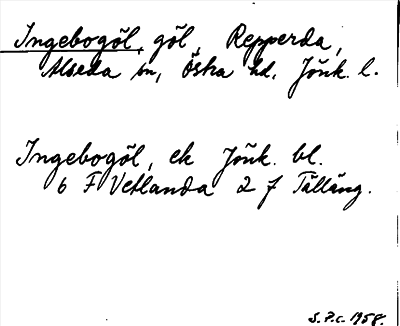 Ingebogöl, göl, Repperda,
Alseda sn, Östra hd, Jönk. l.
Ingebogöl, ek Jönk. bl.
6 F Vetlanda 2 f Tälläng.
S.P.c. 1958.